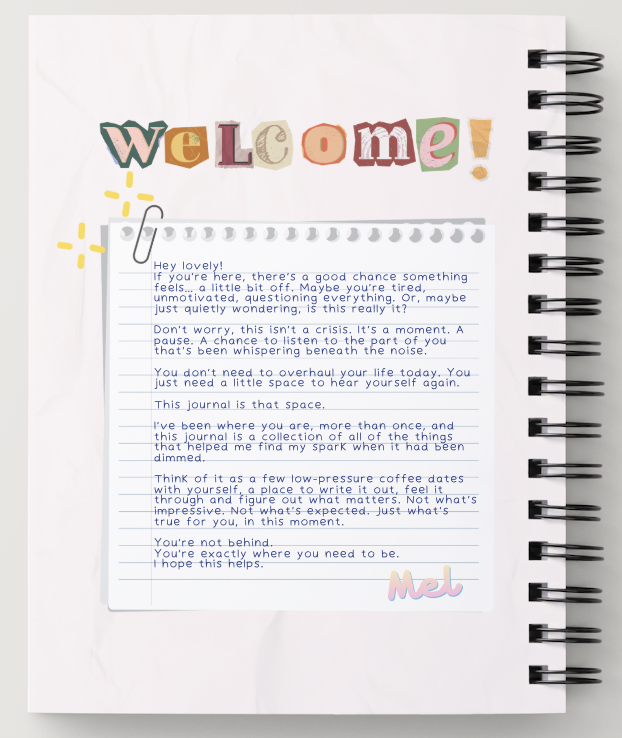 Welcome!
Hey lovely!
If you're here, there's a good chance something
feels... a little bit off. Maybe you're tired,
unmotivated, questioning everything. Or, maybe
just quietly wondering, is this really it?
Don't worry, this isn't a crisis. It's a moment. A
pause. A chance to listen to the part of you
that's been whispering beneath the noise.
You don't need to overhaul your life today. You
just need a little space to hear yourself again.
This journal is that space.
I've been where you are, more than once, and
this journal is a collection of all of the things
that helped me find my spark when it had been
dimmed.
Think of it as a few low-pressure coffee dates
with yourself, a place to write it out, feel it
through and figure out what matters. Not what's
impressive. Not what's expected. Just what's
true for you, in this moment.
You're not behind.
You're exactly where you need to be.
I hope this helps.
Mel